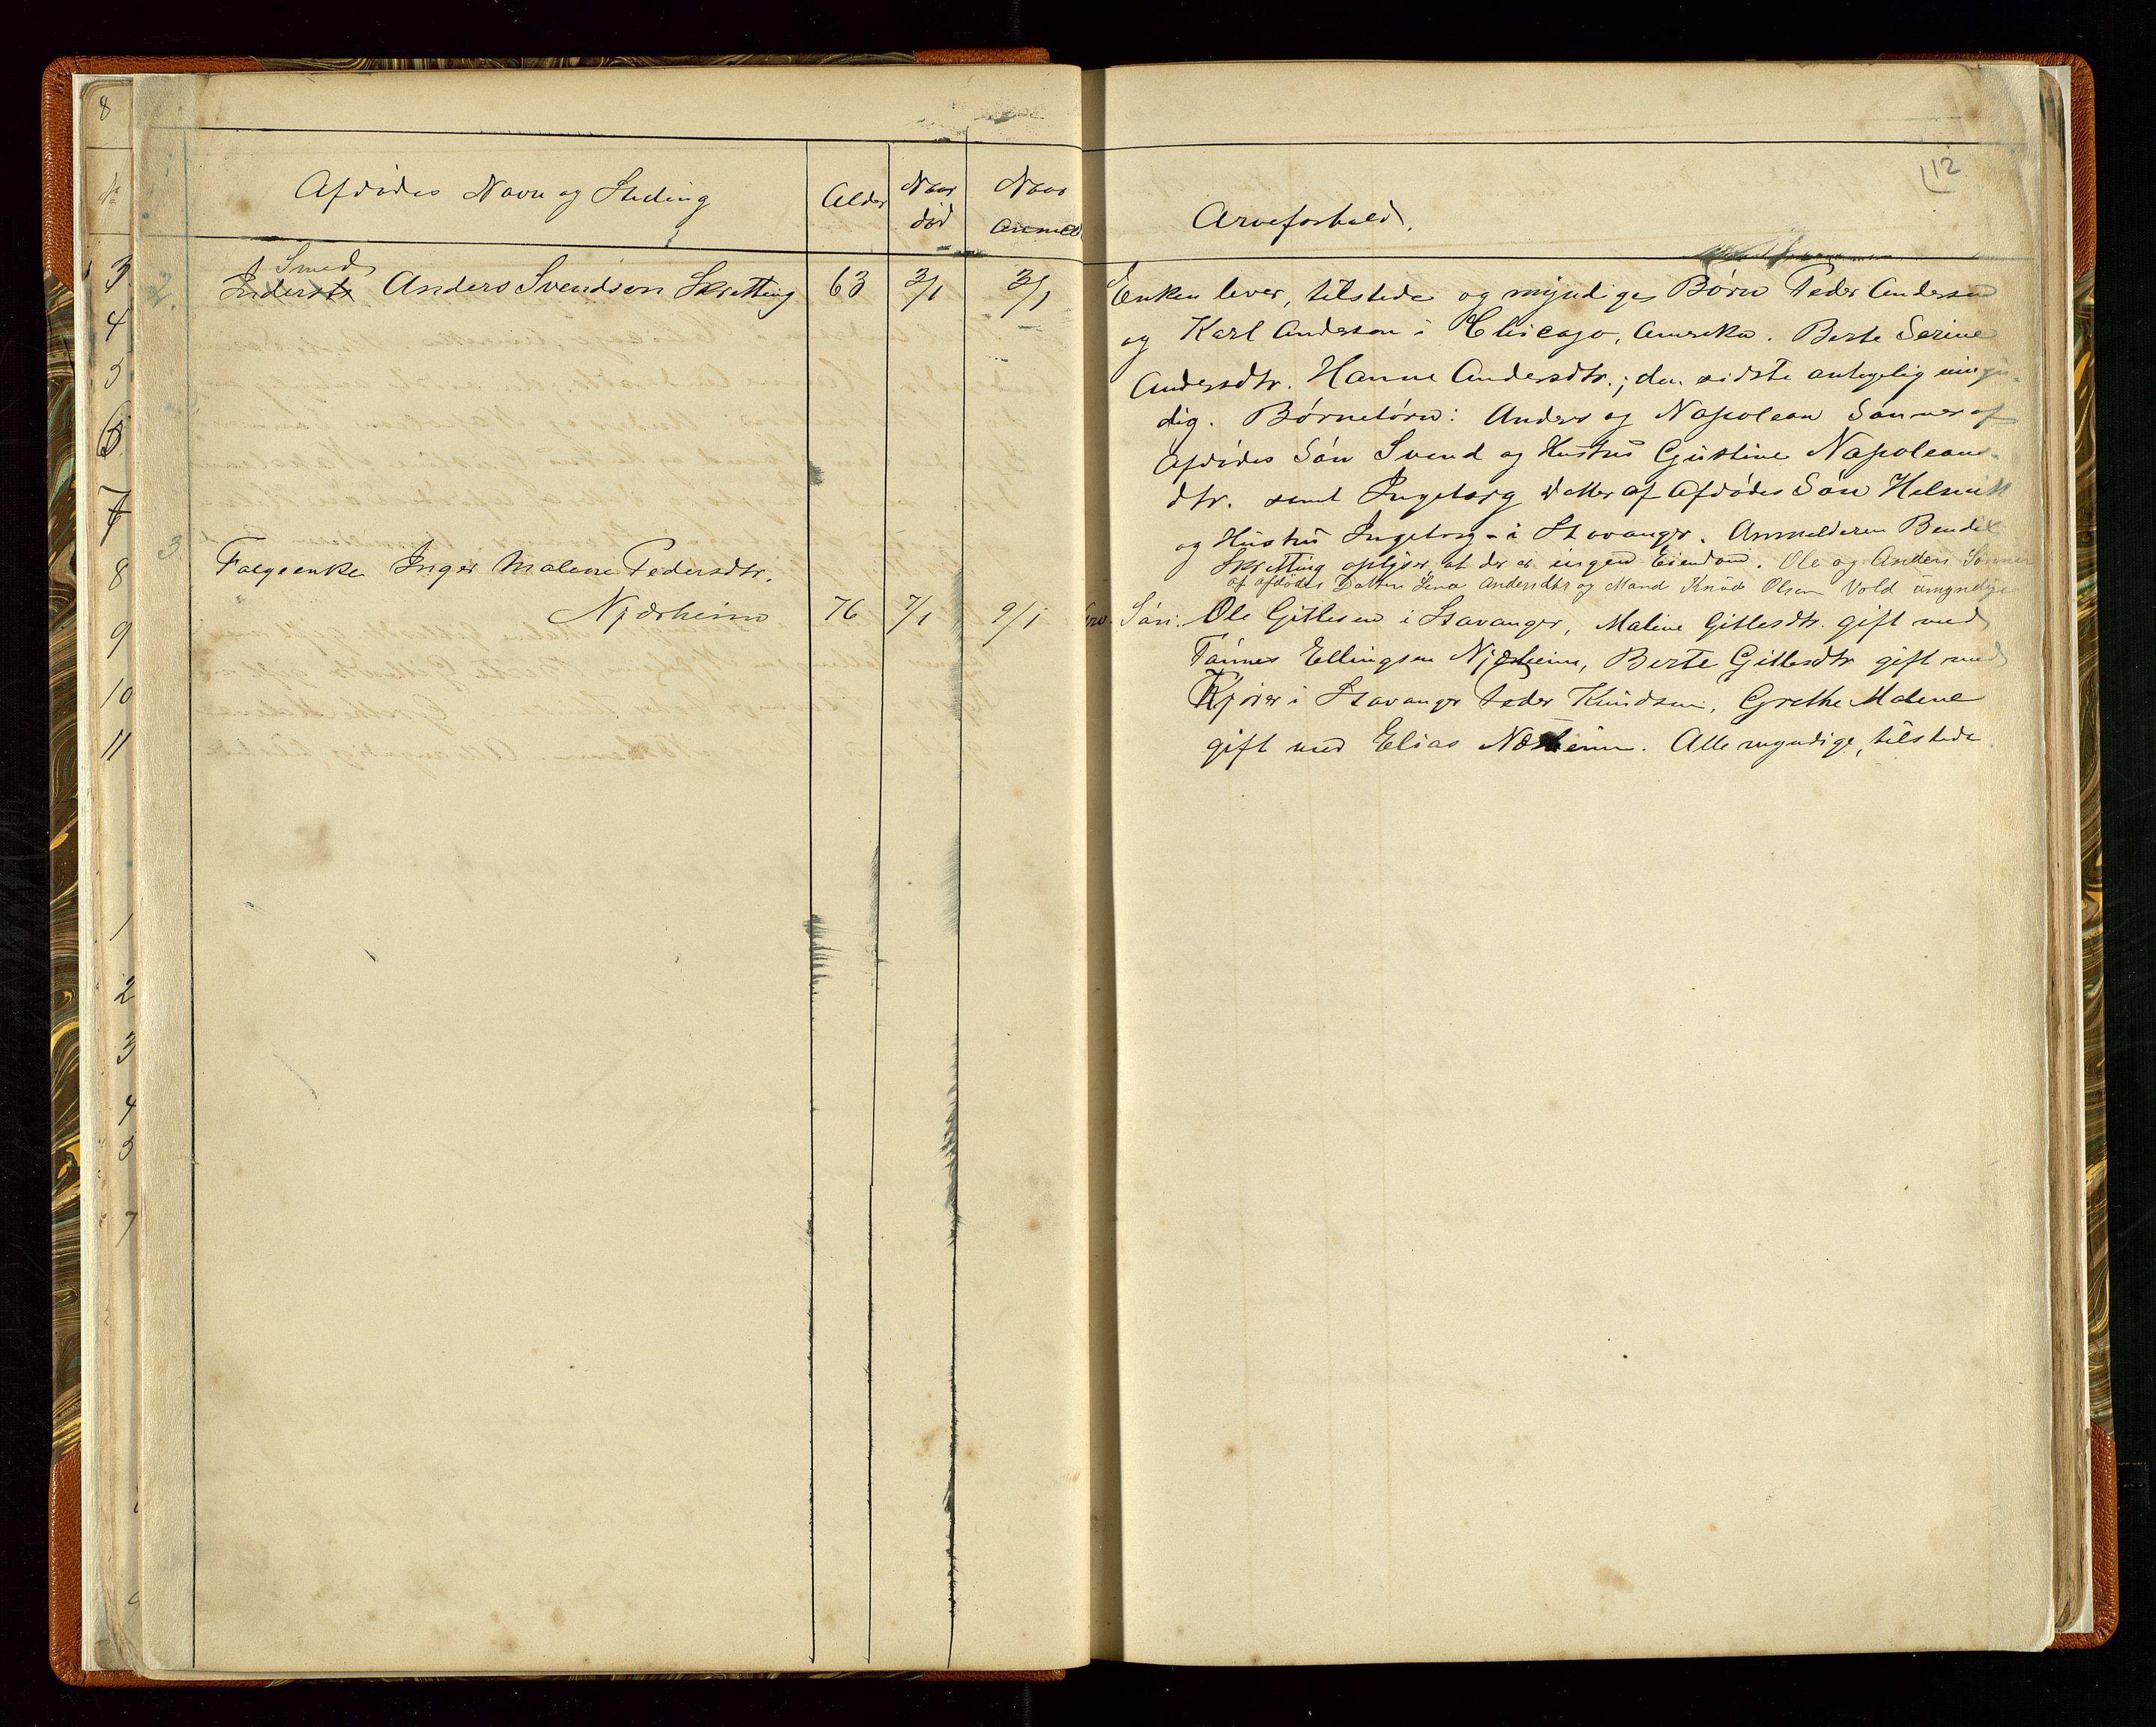 8
12
Afdødes Navn og Stilling
Alder
Naar død
Naar Anmeld
Arveforhold.
2.
Smed
Inderste Anders Svendsen Skretting 63 3/1 3/1
Enken lever, tilstede og myndige Børn Peder Andersen
og Karl Andersen i Chicago, Amerika. Berte Serine
Andersdtr. Hanne Andersdtr.; den sidste antagelig umyn-
dig. Børnebørn: Anders og Napolean Sønner af
Afdødes Søn Svend og Hustru Gustine Napoleans-
dtr. samt Ingeborg Datter af Afdødes Søn Helmik
og Hustru Ingeborg - i Stavanger. Anmelderen Bendix
Skretting oplyser, at der er ingen Eiendom. Ole og Anders Sønner
af afdødes Datter Lena Andersdtr og Mand Knud Olsen Vold umyndige
3.
Faegeenke Inger Malene Pedersdtr.
Njærheim 76 7/1 9/1
Søn: Ole Gitlesen i Stavanger, Malene Gitlesdtr. gift med
Tønnes Ellingsen Njærheim, Berte Gitlesdtr gift med
Kjører i Stavanger Peder Knudsen, Grethe Malene
gift med Elias Nærheim. Alle myndige, tilstede
3
4
5
6
7
8
9
10
11
1
2
3
4
5
7